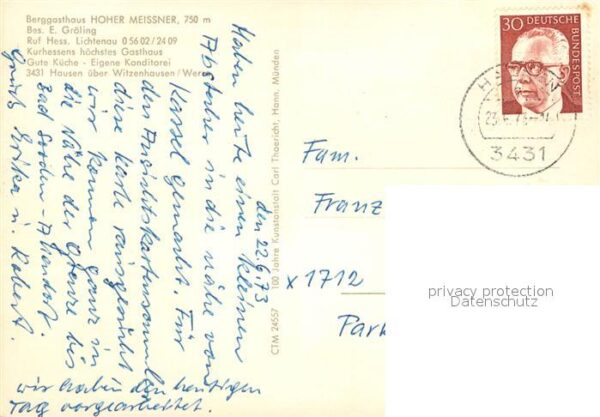 Berggasthaus HOHER MEISSNER, 750 m
Bes. E. Gröling
Ruf Hess. Lichtenau 0 56 02 / 24 09
Kurhessens höchstes Gasthaus
Gute Küche - Eigene Konditorei
3431 Hausen über Witzenhausen / Werra
30 DEUTSCHE
BUNDESPOST
3431
den 22.6.73
Haben heute einen kleinen
Abstecher in die nähe von
Kassel gemacht. Für
den Ansichtskartensammler
diese Karte rausgesucht
wir kamen ganz in
die Nähe der Grenze bis
Bad Sooden-Allendorf.
Gruß Erika u. Robert.
wir haben den heutigen
Tag vorgearbeitet.
CTM 24557 100 Jahre Kunstanstalt Carl Thoericht, Hann. Münden
Fam.
Franz
x 1712
Park
privacy protection
Datenschutz